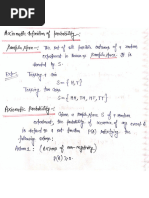 Axiomatic definition of probability :-
Sample space :- The set of all possible outcomes of a random
experiment is known as sample space. It is
denoted by S.
Tossing a coin
S = {H, T}
Tossing two coin
S = {HH, TH, HT, TT}
Axiomatic Probability :-
Given a sample space S of a random
experiment, the probability of occurrence of any event E
is defined as a set function P(E) satisfying the
following axioms.
Axiom 1 : (Axiom of non-negativity)
P(E) ≥ 0